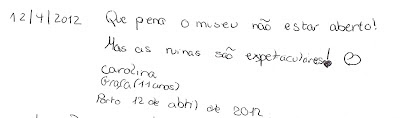 12/4/2012 Que pena o museu não estar aberto!
Mas as ruinas são espetaculares!
Carolina
Graça (11 anos)
Porto 12 de abril de 2012